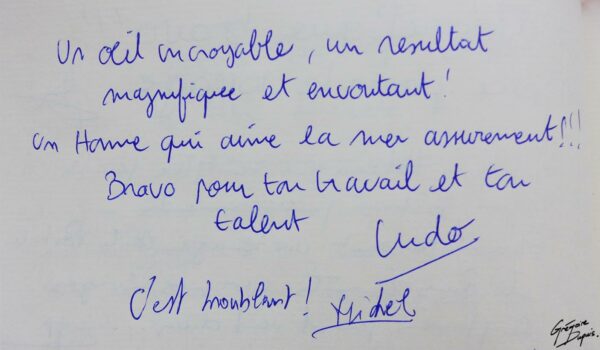 Un œil incroyable, un resultat
magnifique et envoutant !
un Homme qui aime la mer assurement!!!
Bravo pour ton travail et ton
talent
Ludo
C'est troublant ! Michel
Grégoire
Dupuis.